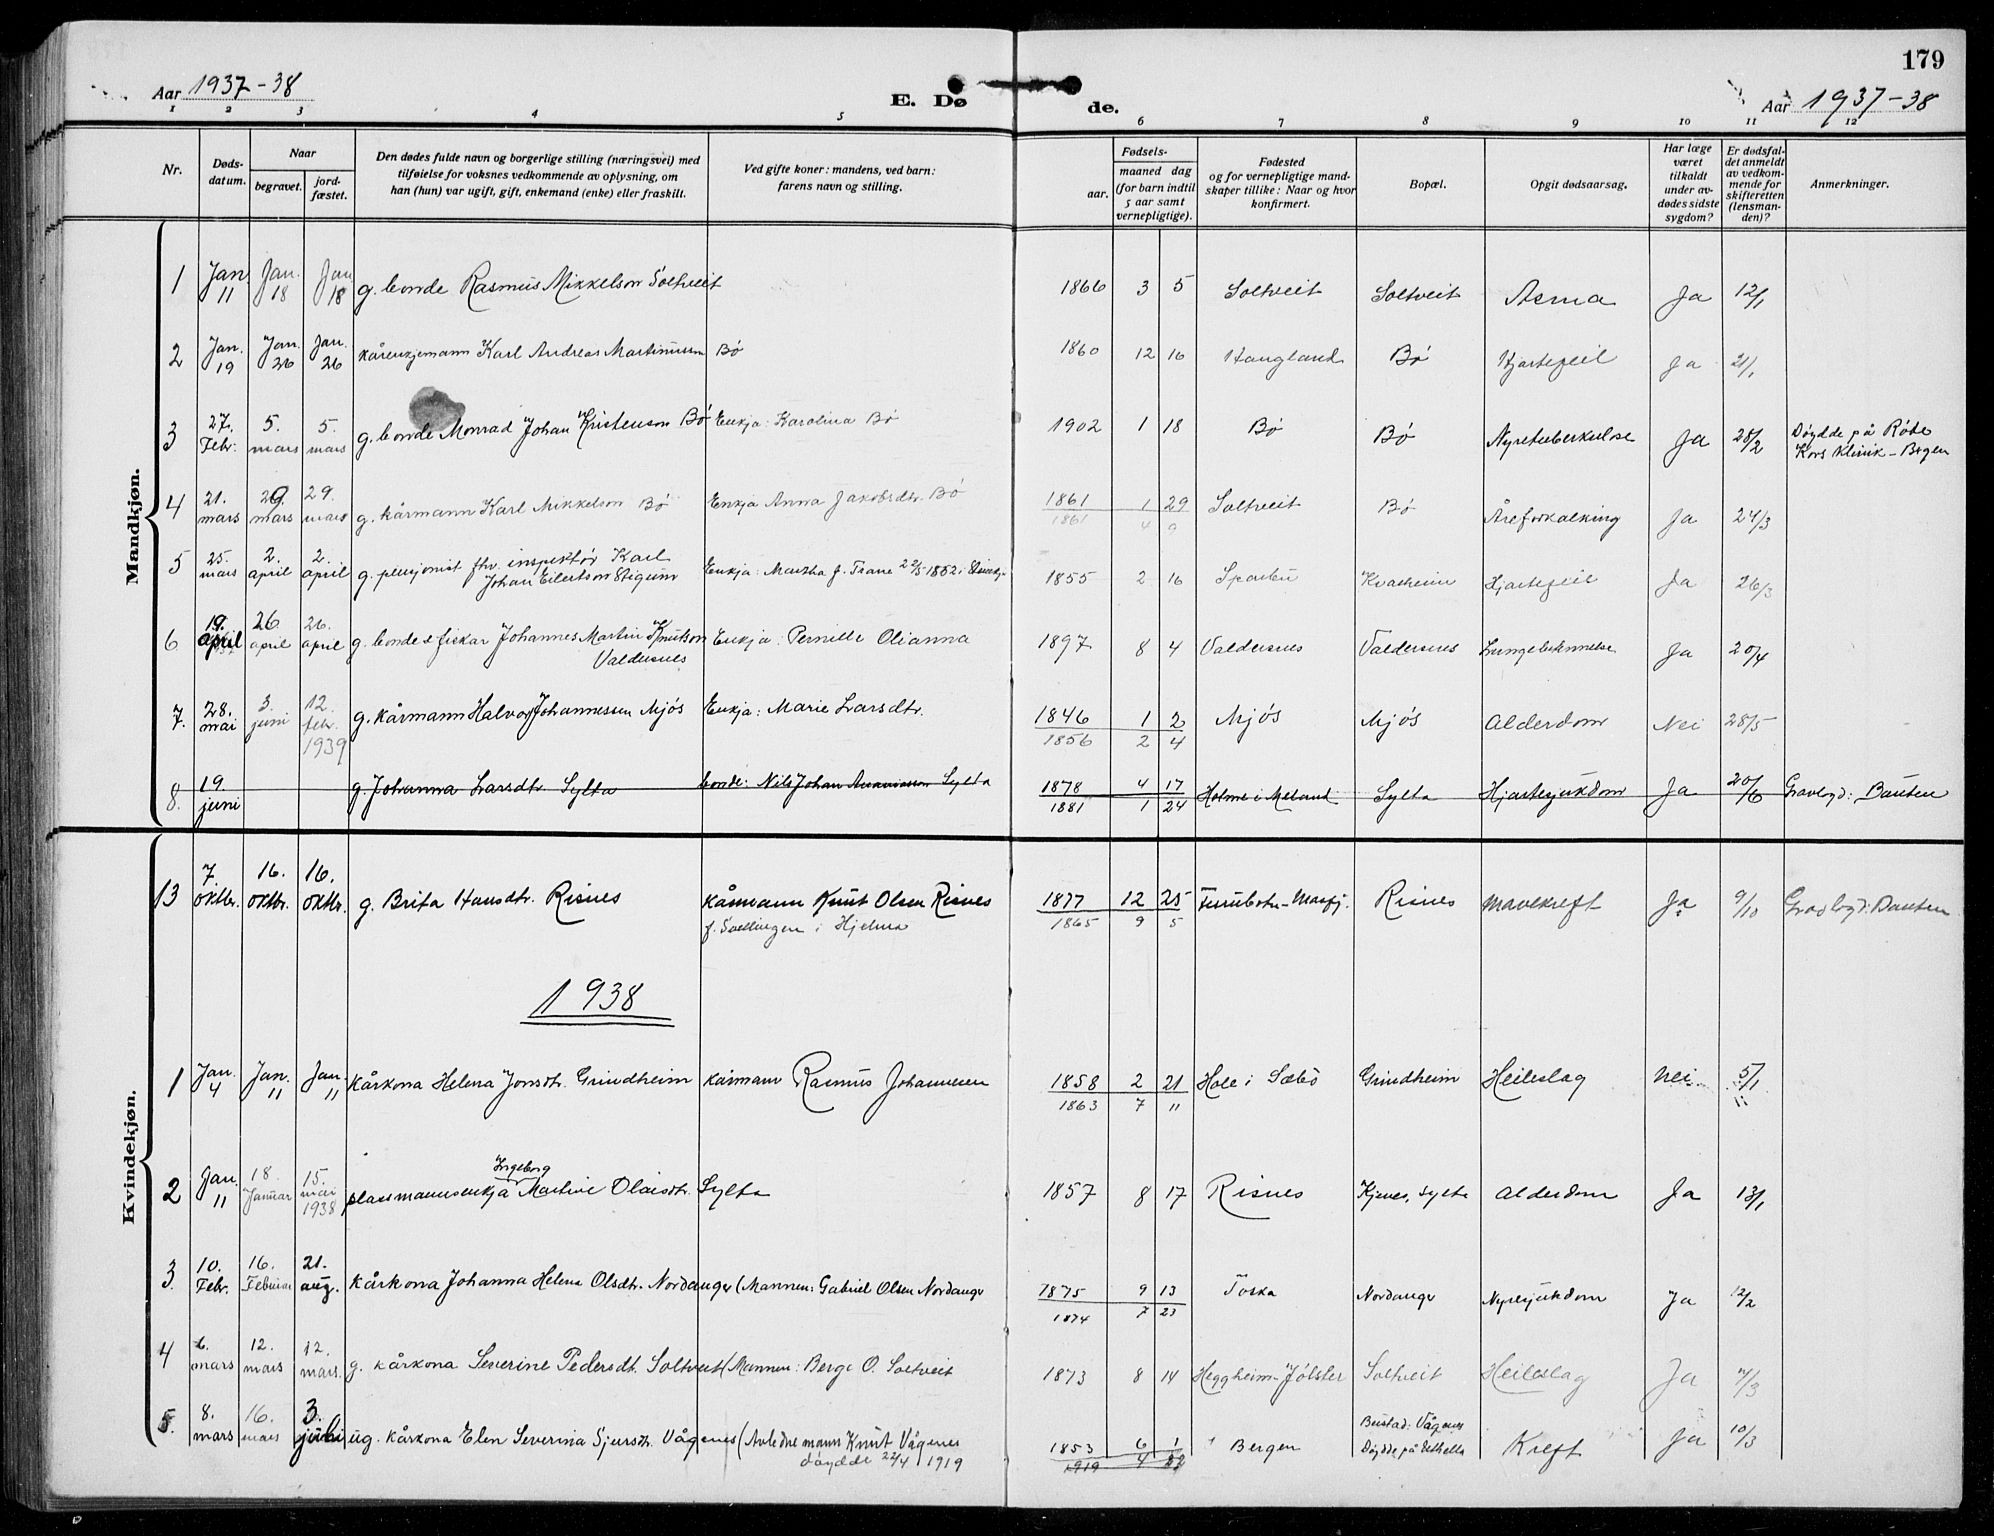 179
Aar 1937-38
E. Dø
de.
Aar 1937-38
1 2 3 4 5 6 7 8 9 10 11 12
Nr.
Døds-
datum.
Naar
begravet.
jord-
fæstet.
Den dødes fulde navn og borgerlige stilling (næringsvei) med
tilføielse for voksnes vedkommende av oplysning, om
han (hun) var ugift, gift, enkemand (enke) eller fraskilt.
Ved gifte koner: mandens, ved barn:
farens navn og stilling.
Fødsels-
aar.
maaned dag
(for barn indtil
5 aar samt
vernepligtige).
Fødested
og for vernepligtige mand-
skaper tillike: Naar og hvor
konfirmert.
Bopæl.
Opgit dødsaarsag.
Har læge
været
tilkaldt
under av-
dødes sidste
sygdom?
Er dødsfal-
det anmeldt
av vedkom-
mende for
skifteretten
(lensman-
den)?
Anmerkninger.
Mandkjøn.
1 Jan. 11 Jan. 18 Jan 18 g. bonde Rasmus Mikkelson Soltveit 1866 3 5 Soltveit Soltveit Asma Ja 12/1
2 Jan. 19 Jan. 26 Jan. 26 kårenkjemann Karl Andreas Martinussen Bø 1860 12 16 Haugland Bø Hjartefeil Ja 21/1
3 27. Febr. 5. mars 5. mars g. bonde Monrad Johan Kristenson Bø Enkja: Karolina Bø 1902 1 18 Bø Bø Nyretuberkulose Ja 28/2 Døydde på Røde
Kors Klinik - Brgen
4 21. mars 29. mars 29. mars g. kårmann Karl Mikkelson Bø Enkja Anna Jakobsdtr. Bø 1861 1 29 Soltveit Bø Åreforkalking Ja 24/3
1861 4 9
5 25. mars 2. april 2. april g. pensjonist fhv. inspektør Karl
Johan Eilertson Stigum Enkja: Martha f. Trane 22/5-1862 i 1855 2 16 Sparbu Kvasheim Hjartefeil Ja 26/3
6 19. april 26 april 26. april g. bonde & fiskar Johannes Martin Knutson
Valdersnes Enkja: Pernille Olianna 1897 8 4 Valdersnes Valdersnes Lungebetennelse Ja 20/4
7. 28. mai 3. juni 12. febr. 1939 g. kårmann Halvor Johannessen Mjøs Enkja: Marie Larsdtr. 1846 1 2 Mjøs Mjøs Alderdom Nei 28/5
1856 2 4
8. 19. juni g. Johanna Larsdtr Sylta bonde: Nils Johan Sylta 1878 4 17 Holme i Meland Sylta Hjartesjukdom Ja 20/6 Gravlagd: Bauten
1881 1 24
Kvindekjøn.
13 7 oktbr. 16. oktbr. 16. oktbr. g. Brita Hansdtr. Risnes kårmann Knut Olsen Risnes
f. Svellingen i Hjelma 1877 12 25 Furubotn - Masfj. Risnes Mavekreft Ja 9/10 Gravlagd: Bauten
1865 9 5
1938
1 Jan. 4 Jan. 11 Jan. 11 kårkona Helena Jonsdtr. Grindheim kårmann Rasmus Johannesen 1858 2 21 Hole i Sæbø Grindheim Heileslag nei 5/1
1863 7 11
2 Jan. 11 18. Januar 15. mai 1938 plassmannsenkja Ingeborg Martine Olaisdtr. Sylta 1857 8 17 Risnes Kjenes, Sylta Alderdom Ja 13/1
3. 10. Febr. 16. Februar 21. aug. kårkona Johanna Helena Olsdtr. Nordanger (Mannen: Gabriel Olsen Nordanger 1875 9 13 Toska Nordanger Nyresjukdom Ja 12/2
1874 7 23
4 6. mars 12. mars 12. mars. g. kårkona Severine Pedersdt. Soltveit (Mannen: Berge O. Soltveit 1873 8 14 Heggheim - Jølster Soltveit Heileslag Ja /3
5. 8. mars 16. mars 3. juli ug. kårkona Elen Severina Sjursdtr. Vågenes (Avledne mann Knut Vågenes
døydde 22/4 1919 1853 6 1 Bergen Bustad: Vågenes
Døydde på Bethella Kreft Ja 10/3
1919 4 22